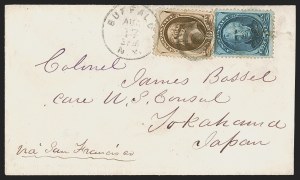 BUFFALO
AUG
N.Y.
Colonel
James Bossel
care U.S. Consul
Yokahama
Japan
via San Francisco